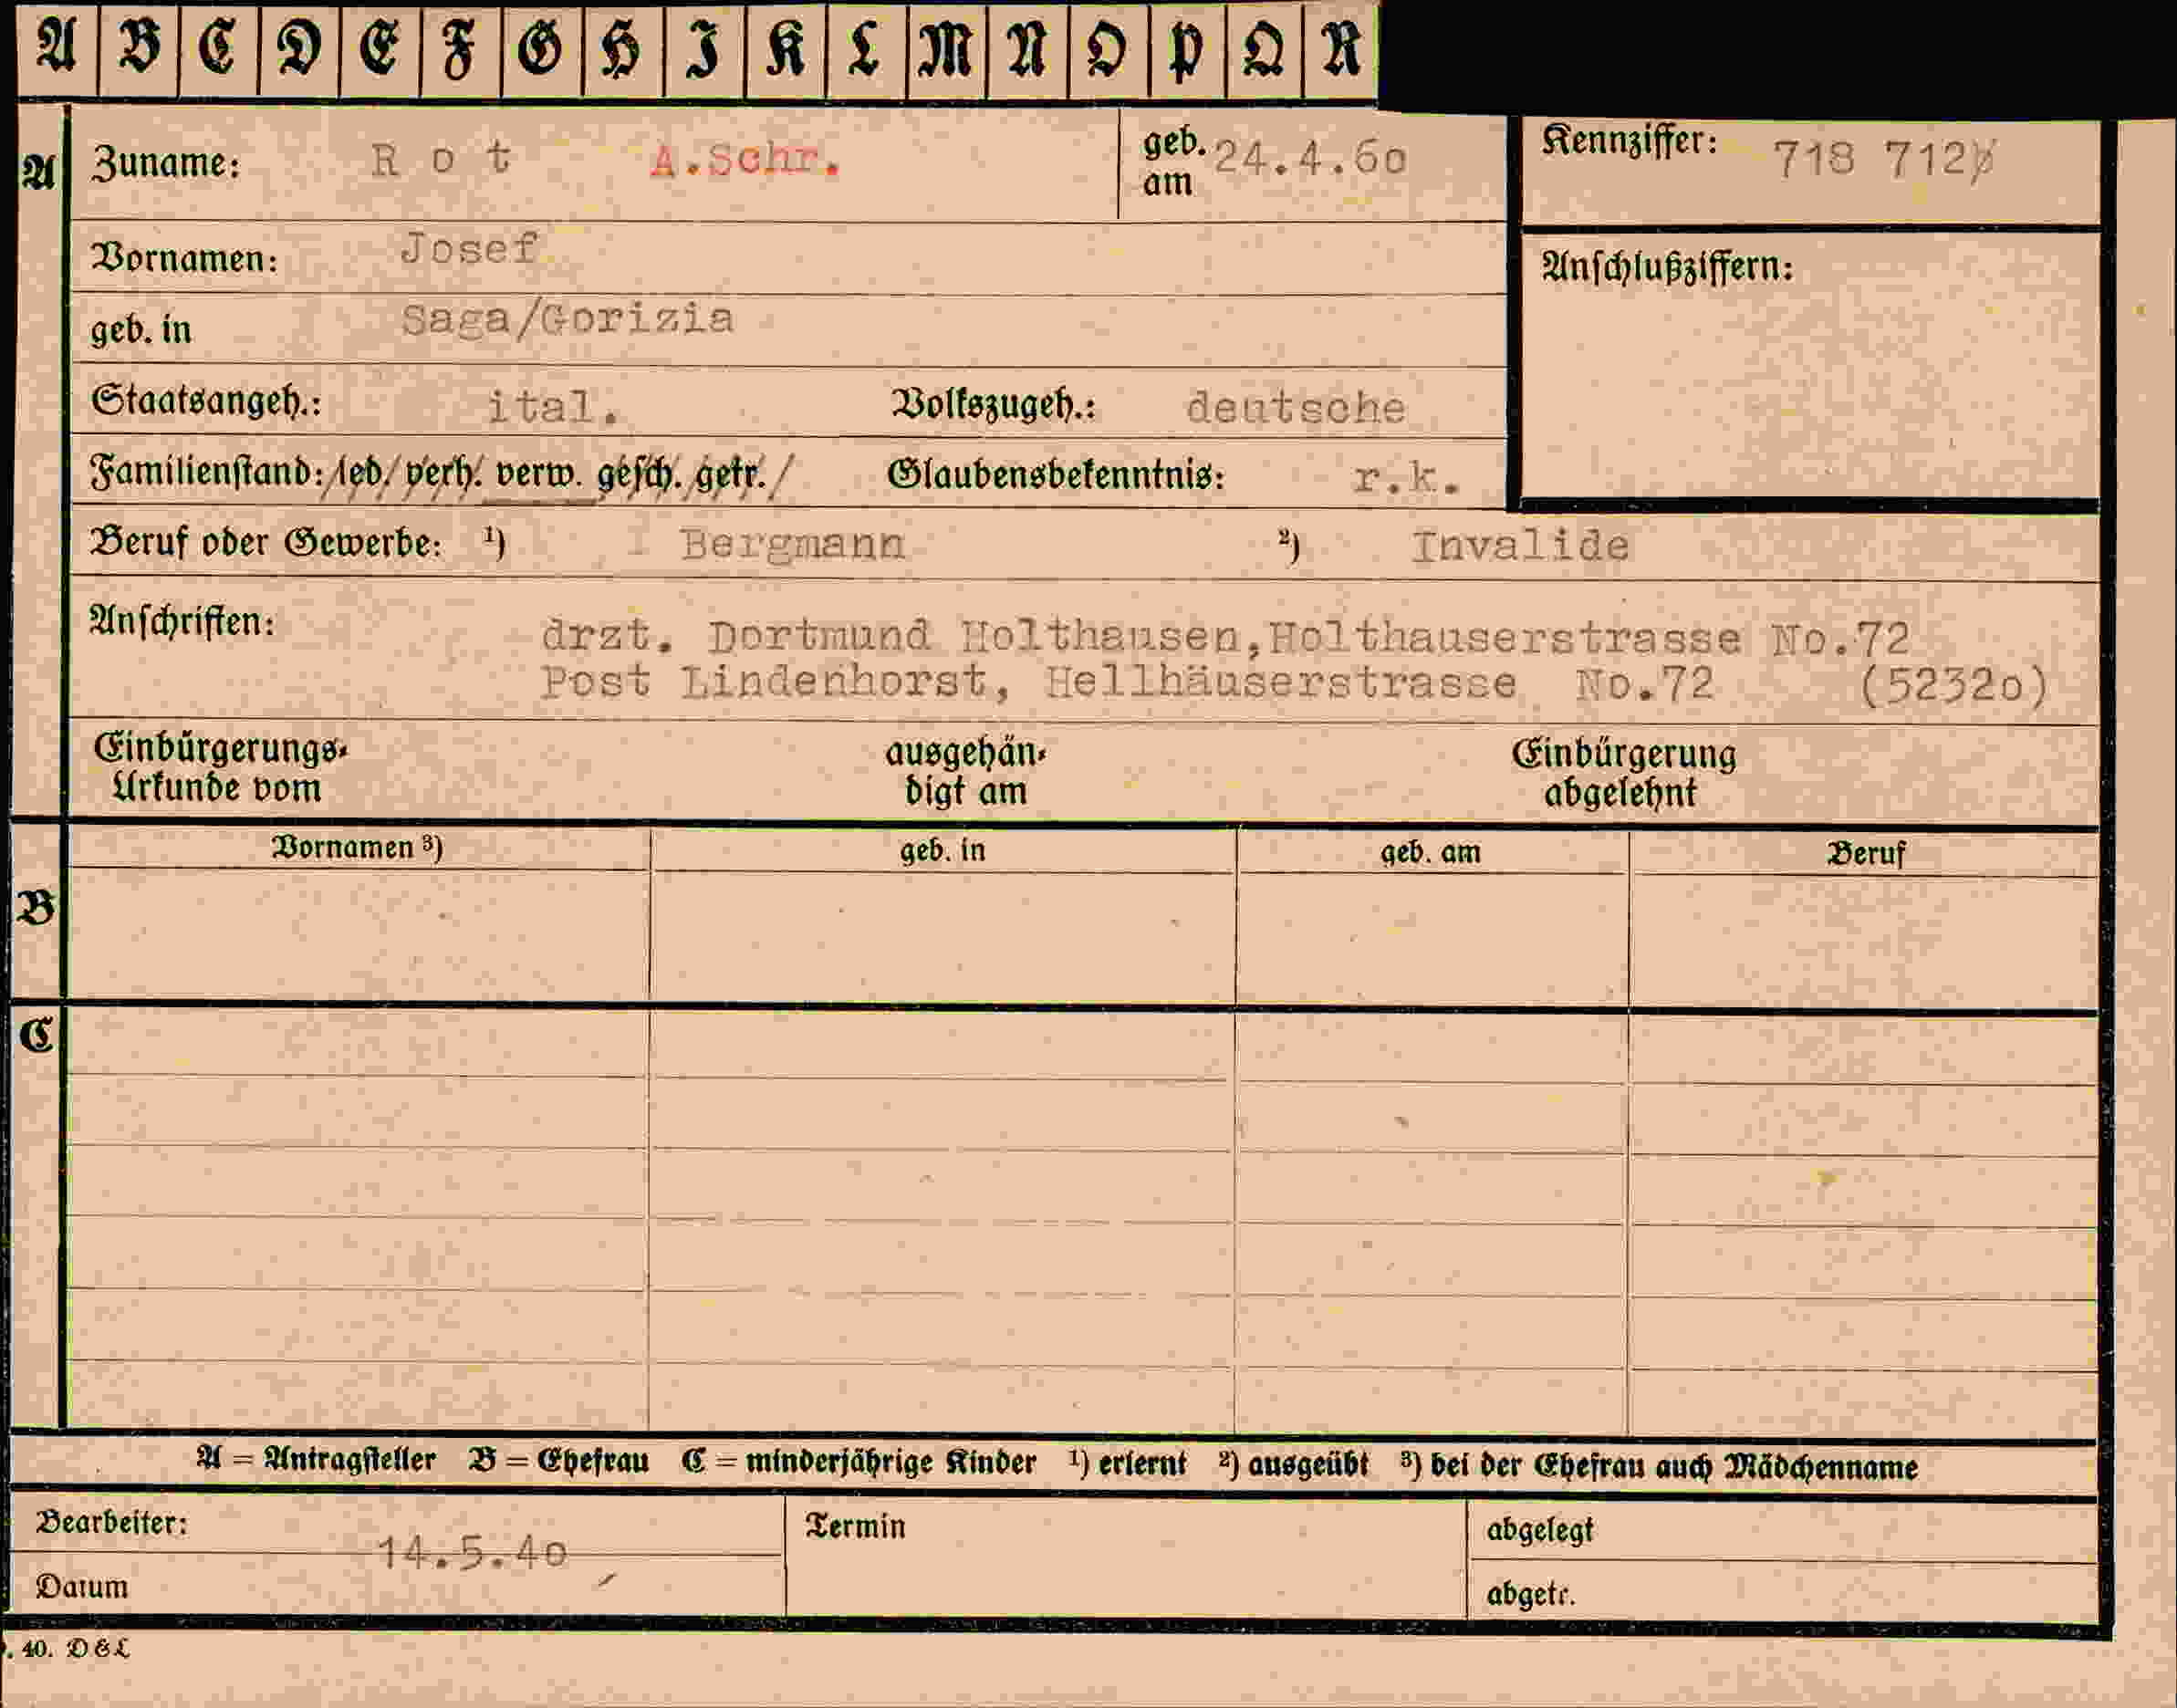 A B C D E F G H I K L M N O P Q R
A Zuname: Rot A.Schr. geb. am 24.4.6o Kennziffer: 718 712
Vornamen: Josef Anschlußziffern:
geb. in Saga/Gorizia
Staatsangeh.: ital. Volkszugeh.: deutsche
Familienstand: led. verh. verw. gesch. getr. Glaubensbekenntnis: r.k.
Beruf oder Gewerbe: ¹) Bergmann ²) Invalide
Anschriften: drzt. Dortmund Holthausen,Holthauserstrasse No.72
Post Lindenhorst, Hellhäuserstrasse No.72 (5232o)
Einbürgerungs- ausgehän- Einbürgerung
Urkunde vom digt am abgelehnt
Vornamen ³) geb. in geb. am Beruf
B
C
A = Antragsteller B = Ehefrau C = minderjährige Kinder ¹) erlernt ²) ausgeübt ³) bei der Ehefrau auch Mädchenname
Bearbeiter: Termin abgelegt
14.5.4o
Datum abgetr.
. 40. D & L